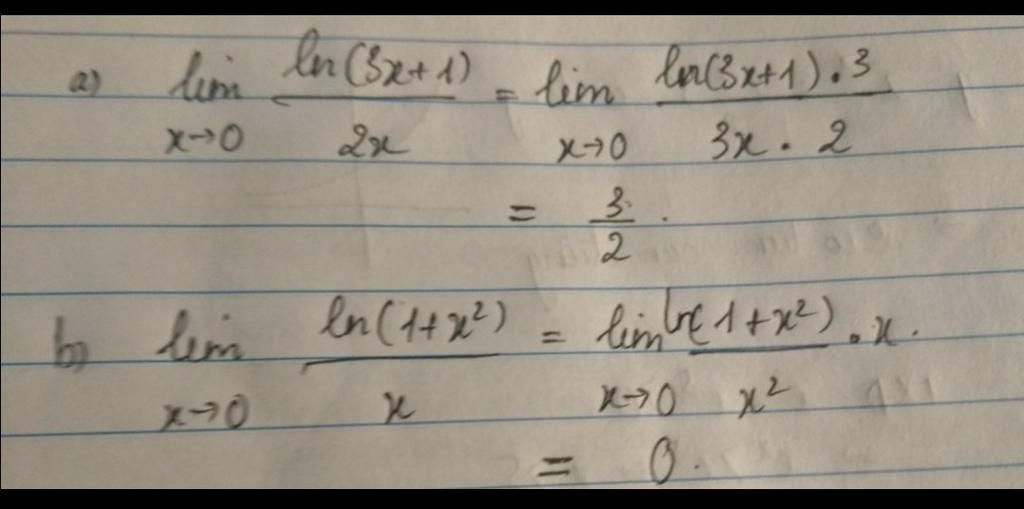 a) lim x→0 ln(3x+1) / 2x = lim x→0 ln(3x+1).3 / 3x.2
= 3/2.
b) lim x→0 ln(1+x²) / x = lim x→0 ln(1+x²) / x² .x.
= 0.